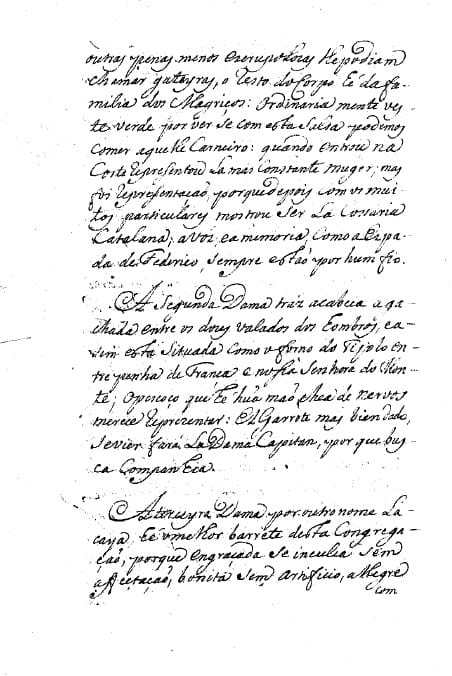 outras penas menos escrupolozas lhe podiam
chamar gateyras, o resto do Corpo hé da fa-
milia dos Magriços: ordinaria mente ves-
te verde por ver se com esta salsa podemos
comer aquelle Carneiro: quando entrou na
Corte representou La mas Constante muger; mas
foi representacaõ, porque depois com os mui-
tos particulares mostrou ser La Cossaria
Catalana; a voz, e a memoria, Como a Espa-
da de Federico, sempre estaõ por hum fio.
A Segunda Dama traz a cabeca aga-
chada entre os douz valados dos hombros, e a-
sim està situada como o forno do Tijolo en-
tre penha de Franca e nossa Senhora do Mon-
te; o pescoço que hé huã maõ chea de nervos
merece representar: El Garrote mas bien dado,
se vier farà La Dama Capitan, por que bus-
ca Companhia.
A terceyra Dama por outro nome La-
caya, hé o melhor barrete desta Congrega-
çaõ, porque engracada se inculca sem
afectaçaõ, bonita sem artificio, alegre
com